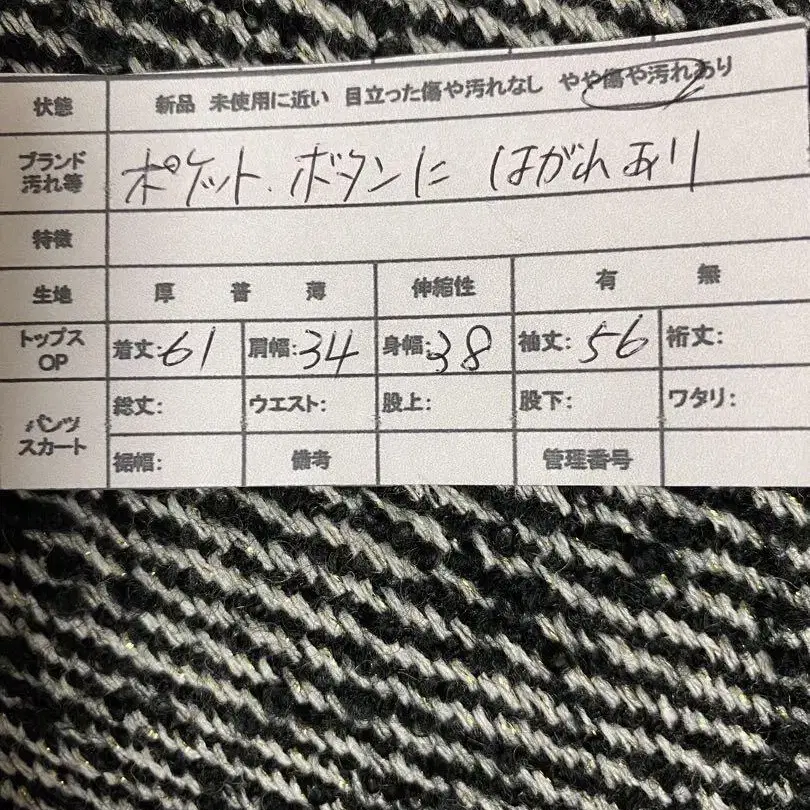 状態 新品 未使用に近い 目立った傷や汚れなし やや傷や汚れあり
ブランド 汚れ等 ポケット.ボタンに はがれあり
特徴
生地 厚 普 薄 伸縮性 有 無
トップス OP 着丈:61 肩幅:34 身幅:38 袖丈:56 裄丈:
パンツ スカート 総丈: ウエスト: 股上: 股下: ワタリ:
裾幅: 備考 管理番号